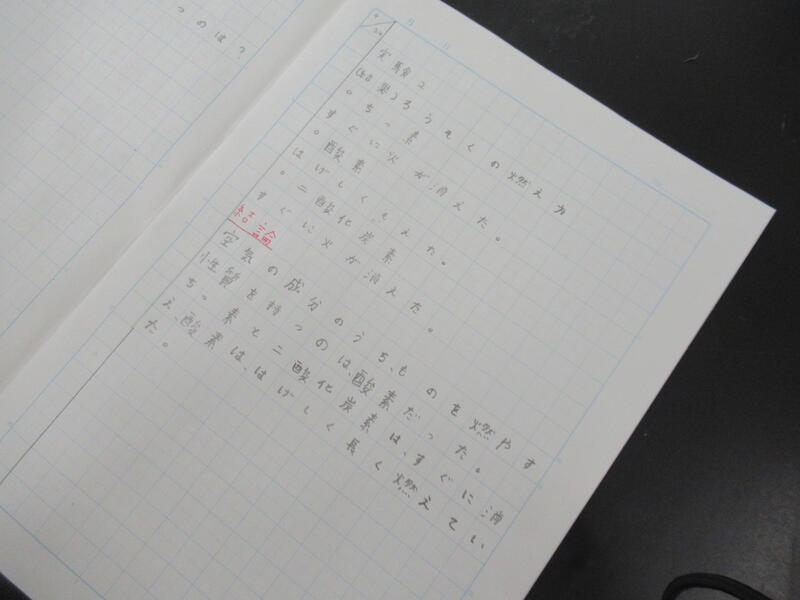 つのは？
4/24
月 日
実験2
(結果)ろうそくの燃え方
。ちっ素
すぐに火が消えた。
。酸素
はげしくもえた。
。二酸化炭素
すぐに火が消えた。
結論
空気の成分のうち、ものを燃やす
性質を持つのは、酸素だった。
ちっ素と二酸化炭素は、すぐに消
え、酸素は、はげしく長く燃えてい
た。